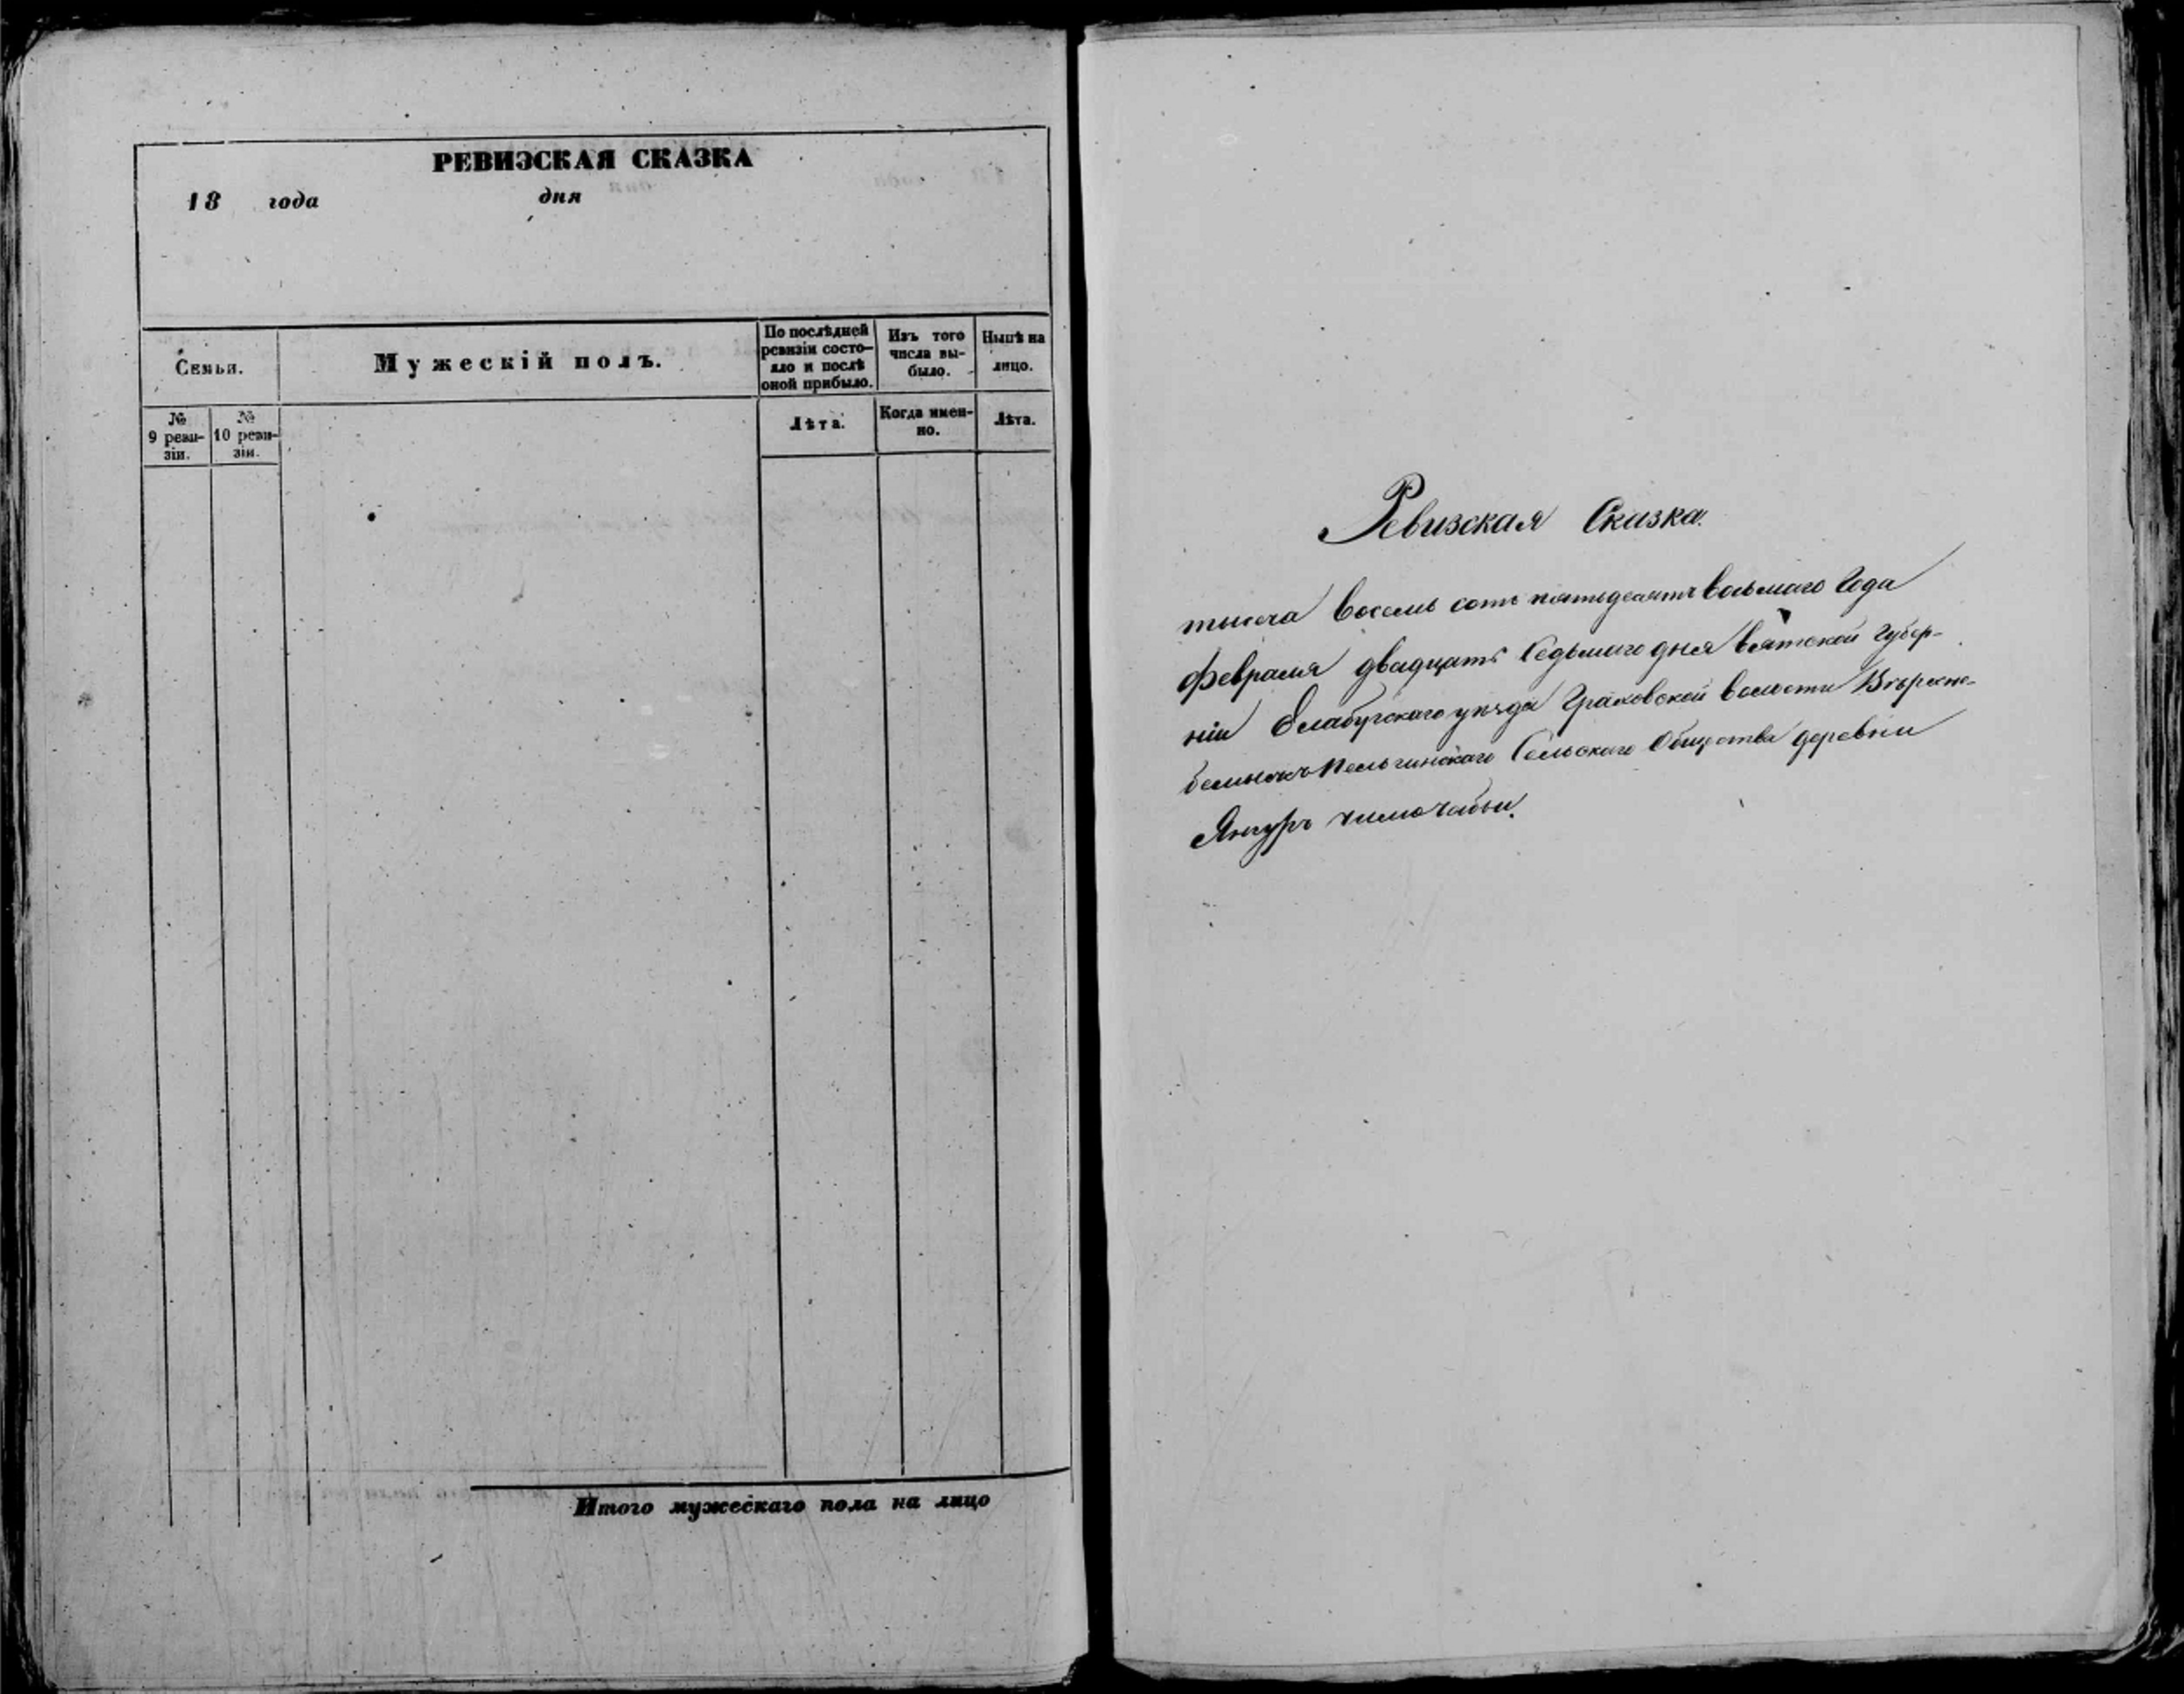 РЕВИЗСКАЯ СКАЗКА
18 года дня
Семьи.
Мужескій полъ.
По послѣдней
ревизіи состо-
яло и послѣ
оной прибыло.
Изъ того
числа вы-
было.
Нынѣ на
лицо.
№
9 реви-
зіи.
№
10 реви-
зіи.
Лѣта.
Когда имен-
но.
Лѣта.
Итого мужескаго пола на лицо
Ревизская Сказка.
тысеча восемь сотъ пятьдесятъ восьмаго Года
февраля двадцать седьмаго дня вятской губер-
ніи Елабугскаго уѣзда Граховской волости
Сельскаго Общества деревни